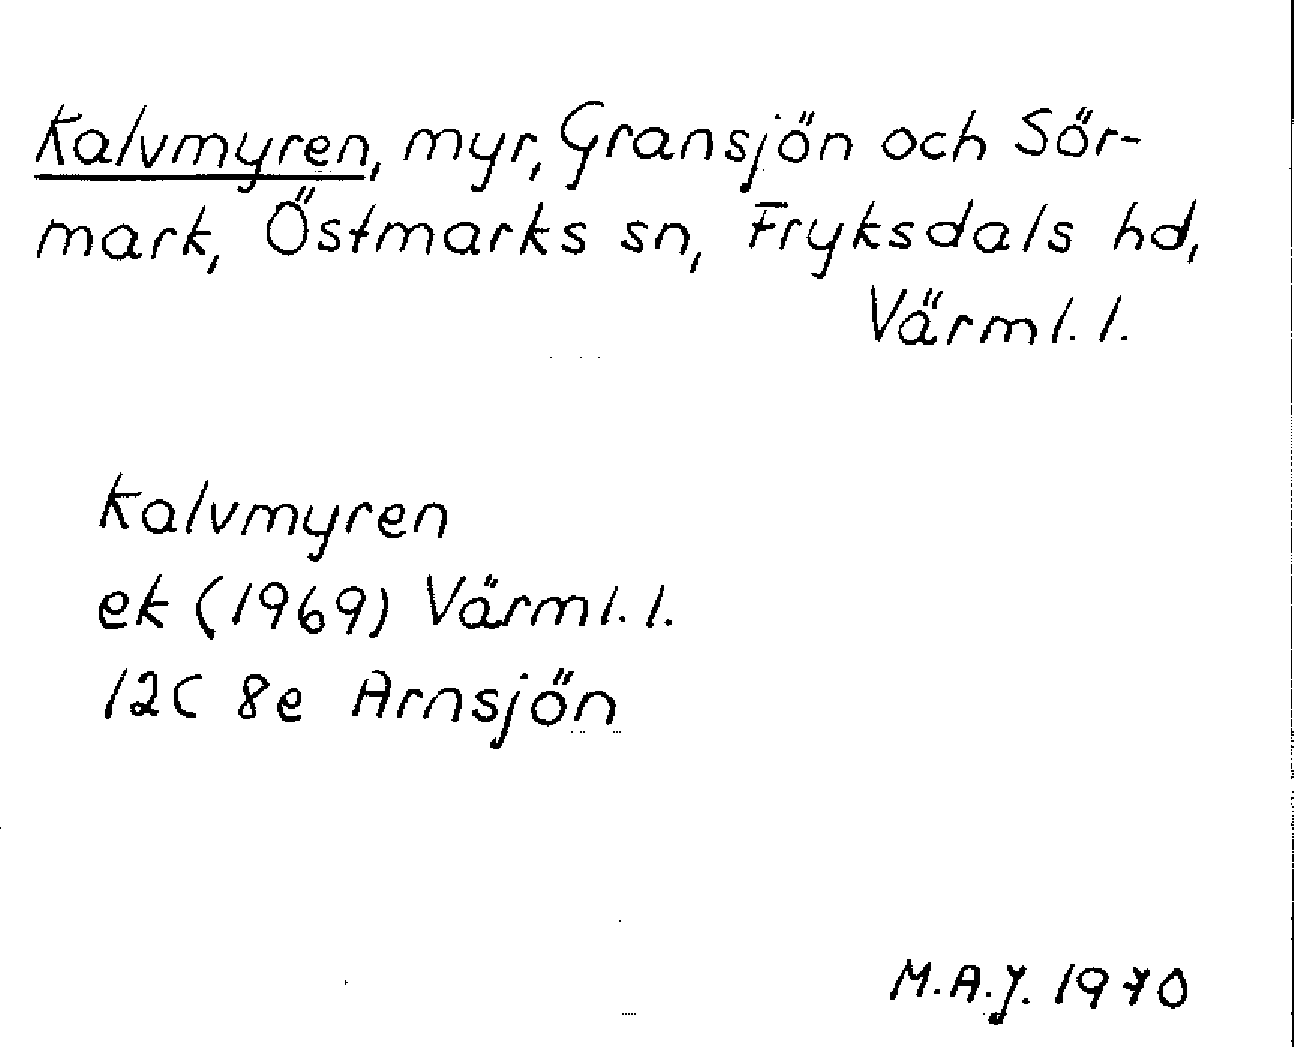 Kalvmyren, myr, Gransjön och Sör-
mark, Östmarks sn, Fryksdals hd,
Värml. l.
Kalvmyren
ek (1969) Värml. l.
12C 8e Arnsjön
M.A.J. 1970